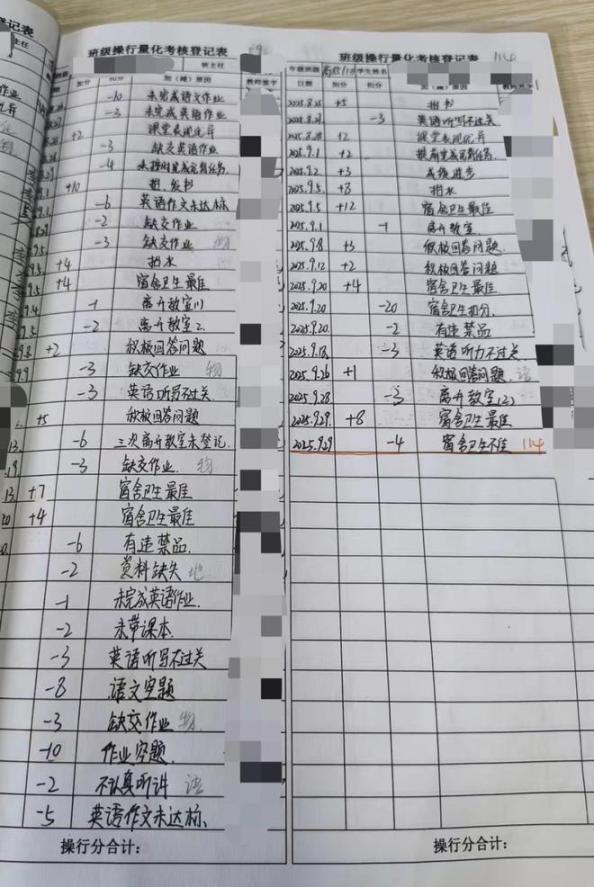 记表
班级操行量化考核登记表
班主任
加分 扣分 加(减)原因
-10 未完成语文作业
-3 未完成英语作业
+2 课堂表现优异
-3 缺交英语作业
-4
+10
-6 英语作文未达标
-2 缺交作业
-3 缺交作业 物
+4 挡水
+4 宿舍卫生最佳
-1 离开教室(1)
-2 离开教室2.
+2 积极回答问题
-3 缺交作业 物
-3 英语听写不过关
+5 积极回答问题
-6 三次离开教室未登记.
-3 缺交作业. 物
+7 宿舍卫生最佳
+4 宿舍卫生最佳
-6 有违禁品.
-2 资料缺失 地
-1 未完成英语作业.
-2 未带课本.
-3 英语听写不过关
-8 语文空题
-3 缺交作业 物
-10 作业空题.
-2 不认真听讲 语
-5 英语作文未达标.
操行分合计:
班级操行量化考核登记表 114
年级班级 学生姓名
日期 加分 扣分 加(减)原因
2025.8.25 +5
-3 英语听写不过关
2025.8.28 +2 课堂表现优异
2025.9.1 +2
2025.9.2 +3 成绩进步
2025.9.5 +8 挡水
2025.9.5 +12 宿舍卫生最佳
2025.9.1 -1 离开教室.
2025.9.8 +3 积极回答问题.
2025.9.12 +2 积极回答问题
2025.9.20 +4 宿舍卫生最佳
2025.9.20 -20 宿舍卫生扣分.
2025.9.20. -2 有违禁品
2025.9.18. -3 英语听力不过关.
2025.9.26 +1 积极回答问题. 语
2025.9.28 -3 离开教室(2)
2025.9.29. +8 宿舍卫生最佳
2025.9.29 -4 宿舍卫生不佳 114
操行分合计: